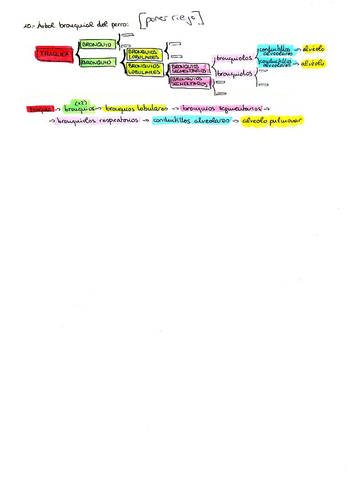 10.- Árbol bronquial del perro: [poner riego]
TRAQUEA
BRONQUIO
BRONQUIO
BRONQUIOS LOBULARES
BRONQUIOS LOBULARES
BRONQUIOS SEGMENTARIOS
BRONQUIOS SEGMENTARIOS
bronquiolos
bronquiolos
conductillos alveolares → alvéolo
conductillos alveolares → alvéolo
Tráquea → bronquios (x2) → bronquios lobulares → bronquios segmentarios →
→ bronquiolos respiratorios → conductillos alveolares → alveolo pulmonar